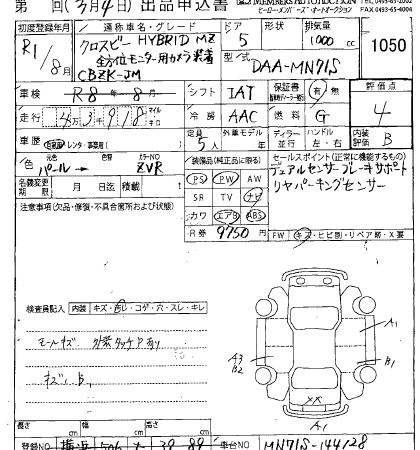 第 回(3月4日) 出品申込書
MEMBERS AUTO AUCTION
ヒーロー・メンバーズ・オートオークション FAX 0493-65-4004
初度登録年月 通称車名・グレード ドア 形状 排気量
R1/8月 クロスビー HYBRID MZ 5 1000cc 1050
全方位モニター用カメラ装着
CBZK-JM 型式 DAA-MN71S
車検 R8年8月 シフト IAT 保証書 有・無 評価点
走行 43918 冷房 AAC 燃料 G 4
車歴 自家用・レンタ・事業用 定員 5人 外車モデル 年 ディーラー 並行 ハンドル 左・右 内装評価 B
色 元色 パール→ 色 カラーNO ZVR
装備品(純正品に限る) セールスポイント(正常に機能するもの)
PS PW AW デュアルセンサーブレーキサポート
名義変更期限 月 日迄 積載 t SR TV ナビ リヤパーキングセンサー
注意事項(欠品・修復・不具合箇所および状態) カワ エアB ABS
R券 9750円 FW キズ・ヒビ割・リペア跡・X要
検査員記入 内装 キズ・汚レ・コゲ・穴・スレ・キレ
A1
A3 B2
B1
キズ、B
XX
A1
長さ cm 幅 cm 高さ cm
登録NO 横浜 506 39-89 車台NO MN71S-144128